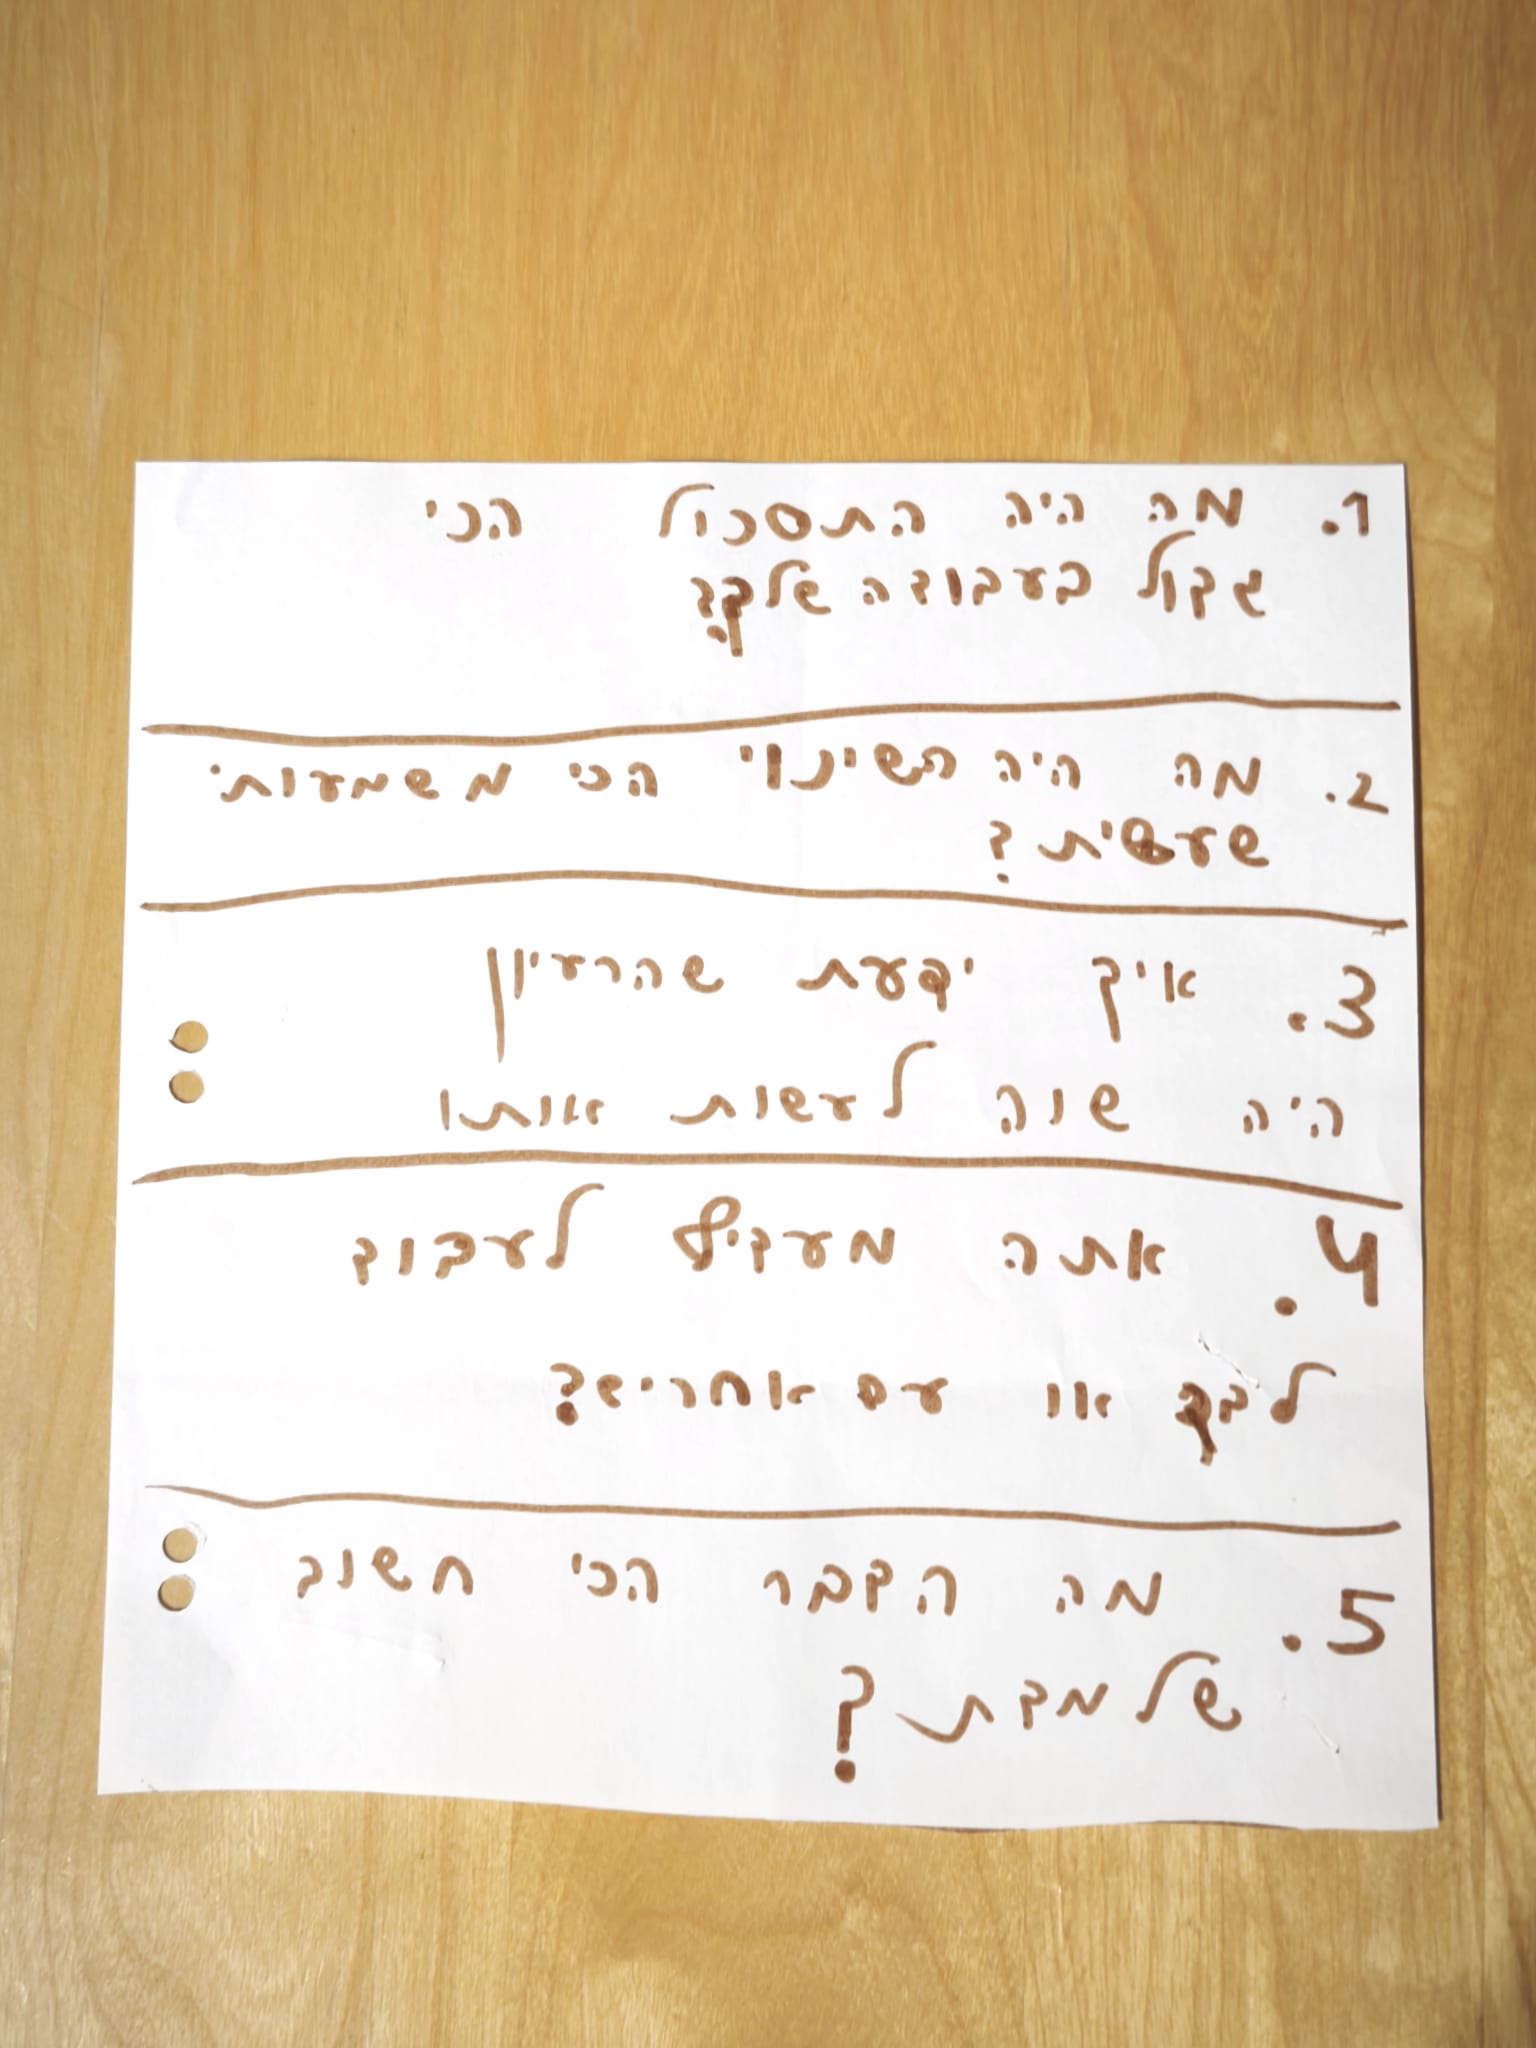 1. מה היה התסכול הכי
גדול בעבודה שלך?
2. מה היה השינוי הכי משמעותי
שעשית?
3. איך ידעת שהרעיון
היה שווה לעשות אותו
4. אתה מעדיף לעבוד
לבד או עם אחרים?
5. מה הדבר הכי חשוב
שלמדת?